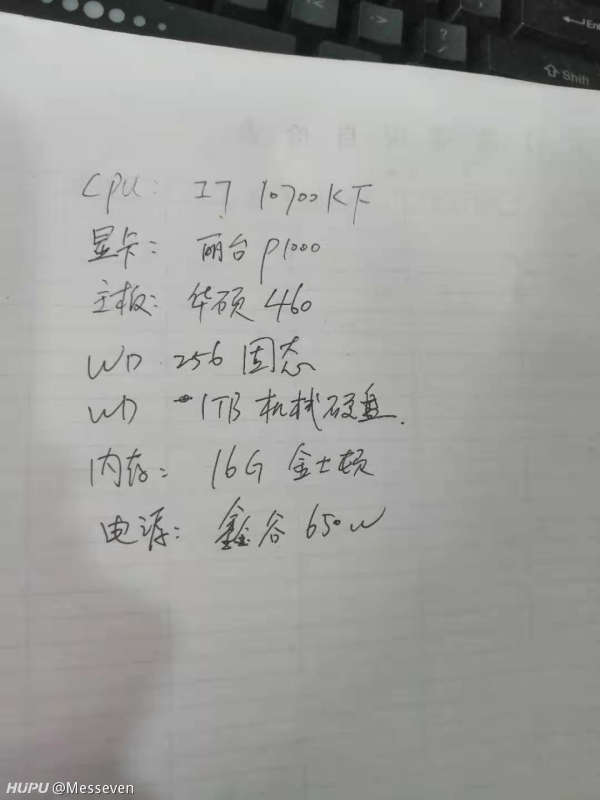 CPU: I7 10700KF
显卡: 丽台 P1000
主板: 华硕 460
WD 256 固态
WD 1TB 机械硬盘.
内存: 16G 金士顿
电源: 鑫谷 650W
Shift
HUPU @Messeven